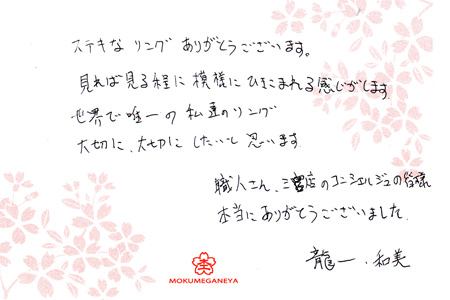 ステキな リング ありがとうございます。
見れば見る程に 模様に ひきこまれる感じがします
世界で唯一の 私達のリング
大切に、大切に したいと 思います
職人さん、三宮店のコンシェルジュの皆様
本当にありがとうございました
龍一・和美
MOKUMEGANEYA